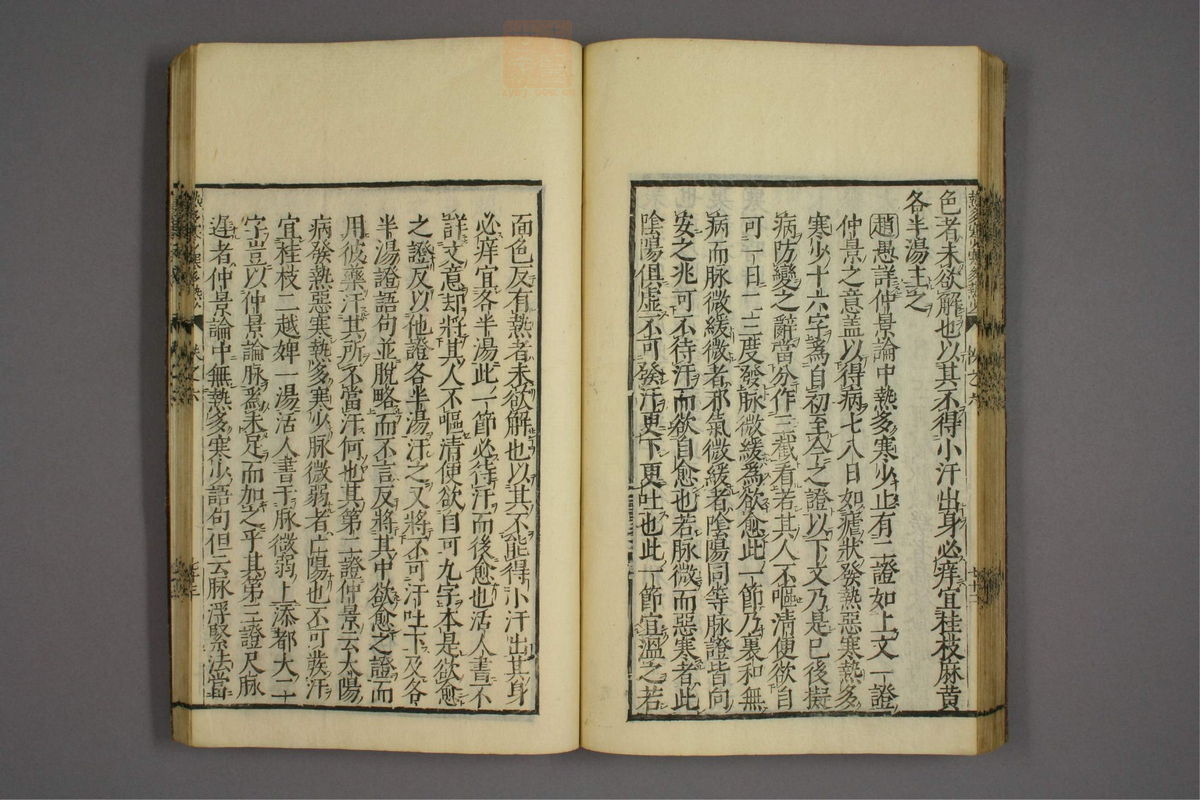 色者未欲解也以其不得小汗出身必痒宜桂枝麻黄
各半湯主之
趙愚詳仲景論中熱多寒少止有二證如上文一證
仲景之意蓋以得病七八日如瘧狀發熱惡寒熱多
寒少十六字爲自初至今之證以下文乃是已後擬
病防變之辭當分作三截看若其人不嘔清便欲自
可一日二三度發脉微緩爲欲愈此一節乃裏和無
病而脉微緩微者邪氣微緩者陰陽同等脉證皆向
安之兆可不待汗而欲自愈也若脉微而惡寒者此
陰陽俱虚不可發汗更下更吐也此一節宜溫之若
面色反有熱者未欲解也以其不能得小汗出其身
必痒宜各半湯此一節必待汗而後愈也活人書不
詳文意却將其人不嘔清便欲自可九字本是欲愈
之證反以他證各半湯汗之又將不可汗吐下及各
半湯證語句並脱略而不言反將其中欲愈之證而
用彼藥汗其所不當汗何也其第二證仲景云太陽
病發熱惡寒熱多寒少脉微弱者亡陽也不可發汗
宜桂枝二越婢一湯活人書于脉微弱上添都大二
字豈以仲景論脉爲未足而加之乎其第三證尺脉
遲者仲景論中無熱多寒少語句但云脉浮緊法當